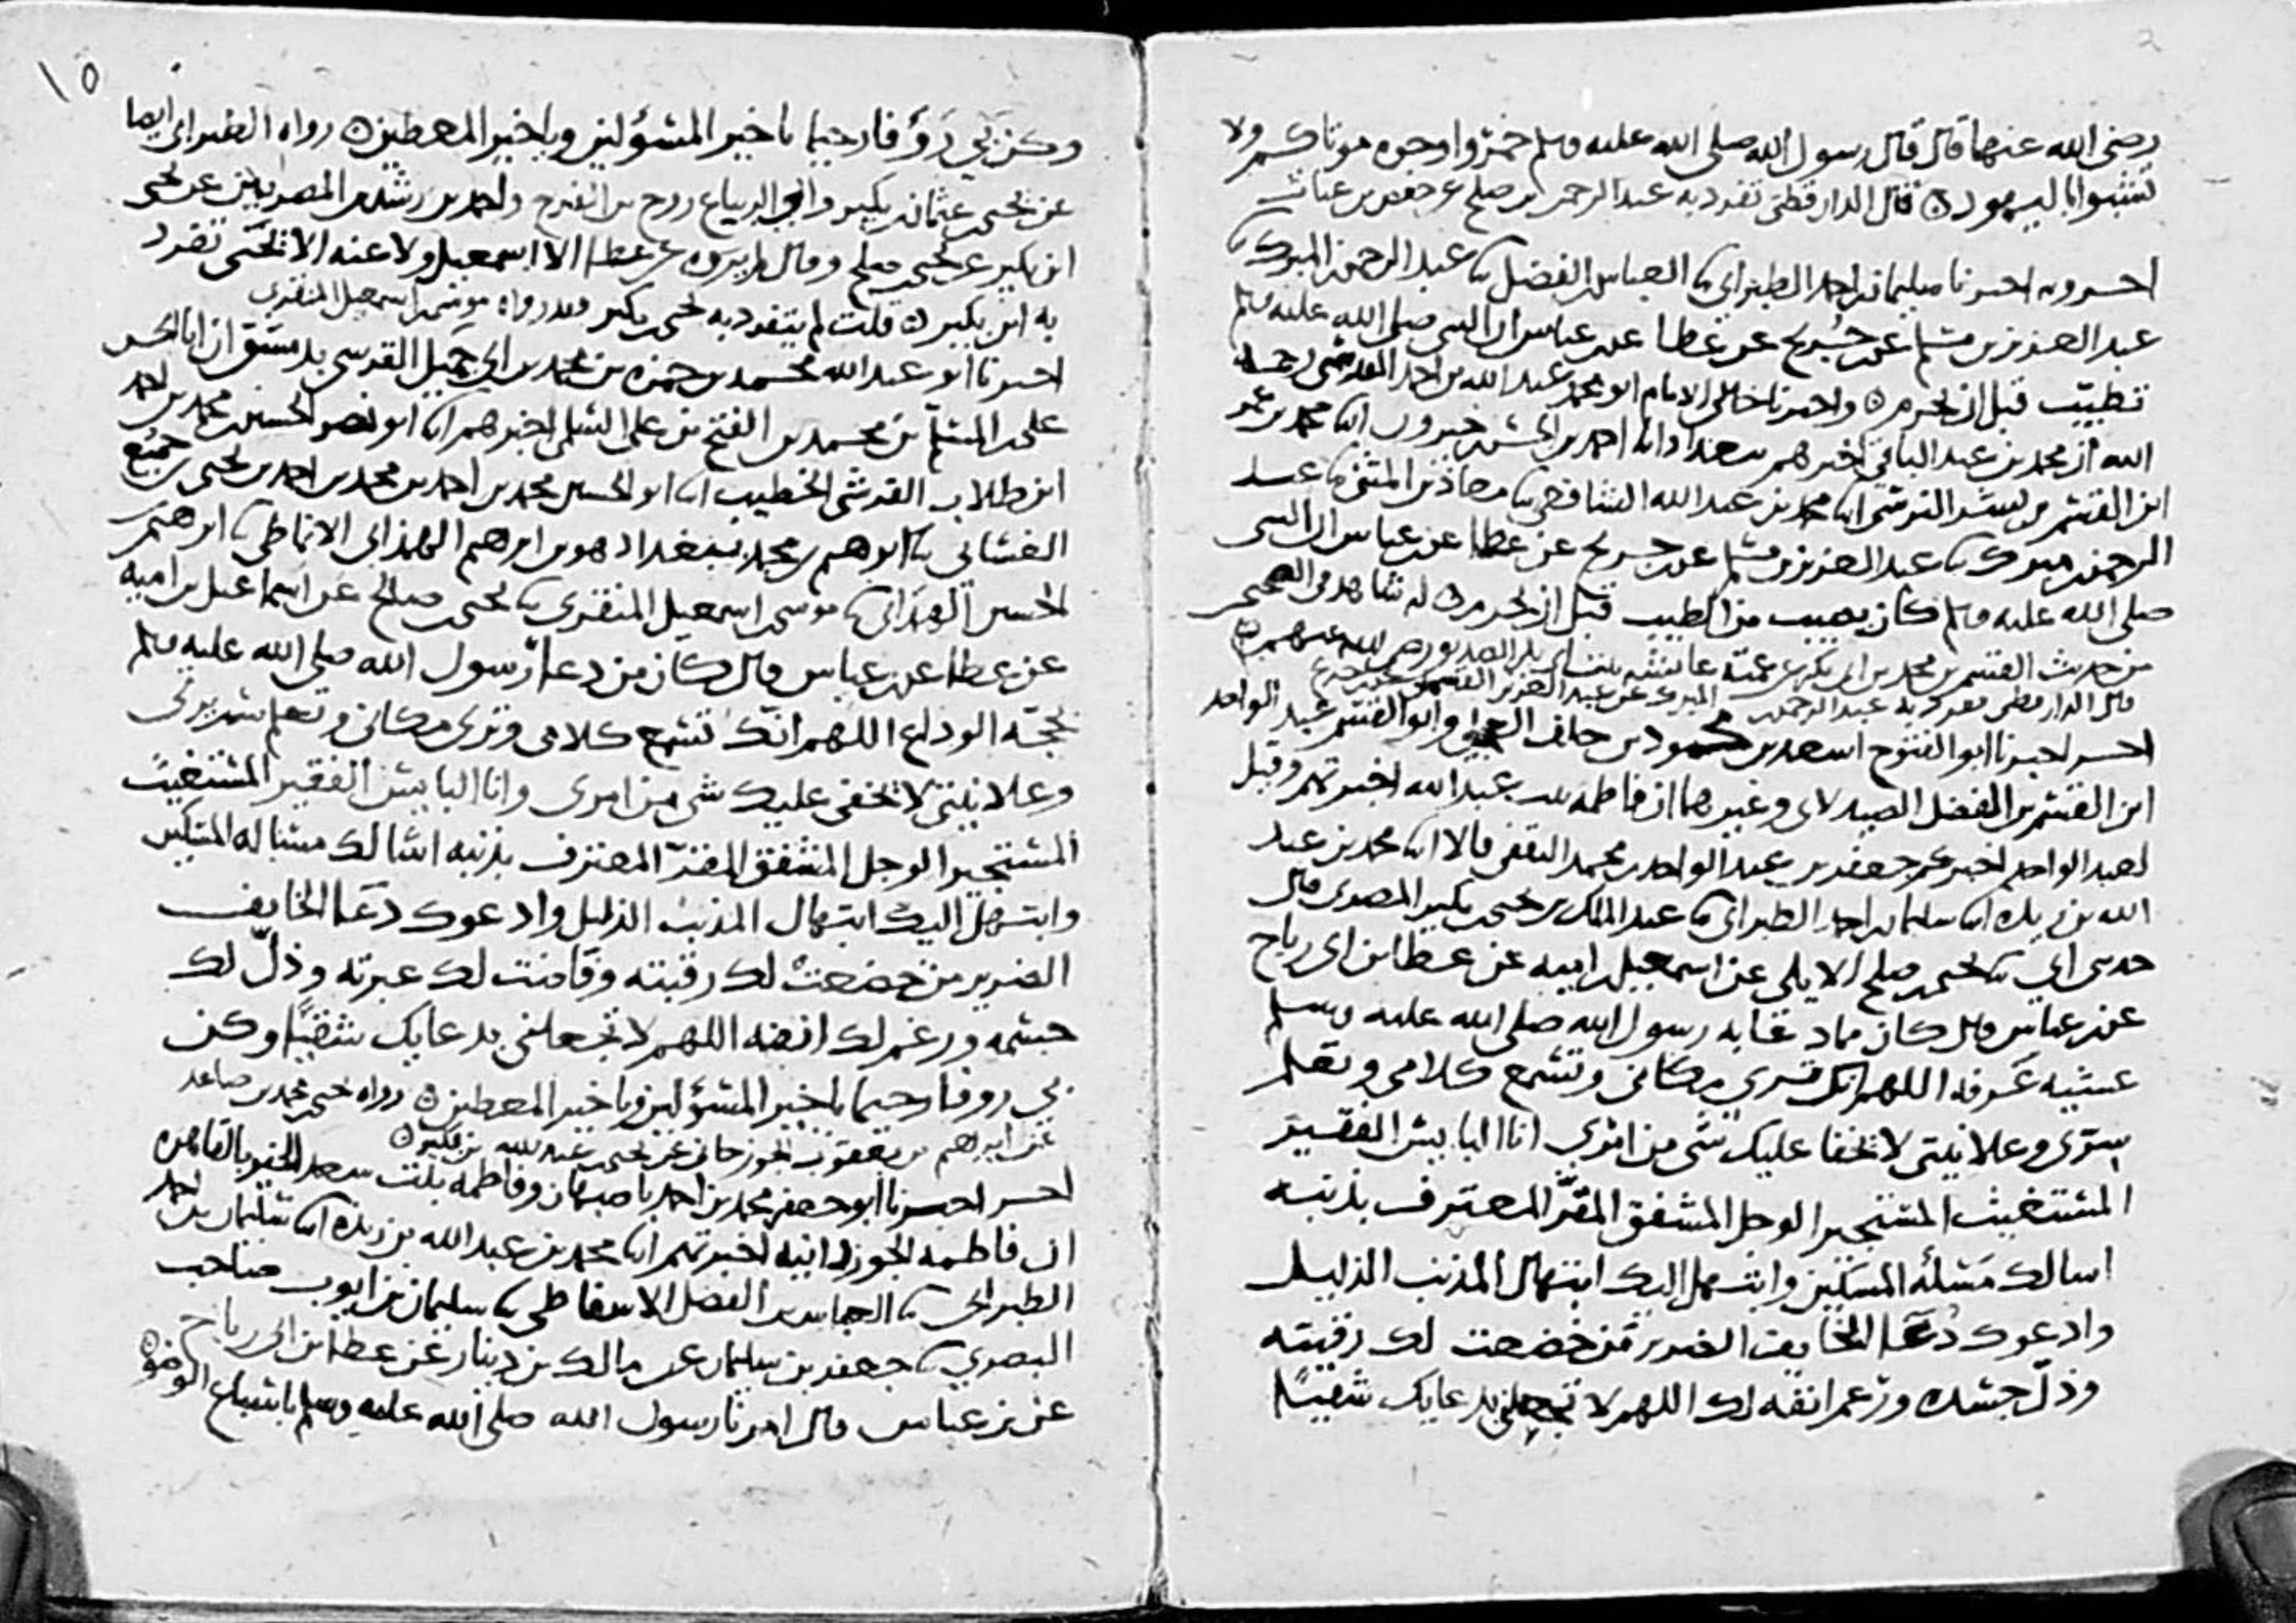 رضى الله عنهما قال قال رسول الله صلى الله عليه وسلم خمروا وجوه موتاكم ولا
تشبهوا باليهود ن قال الدارقطنى تفرد به عبد الرحمن بن صلح عن حفص بن غياث
اخبرنا سليمان بن احمد الطبراني ثنا العباس بن الفضل ثنا عبد الرحمن بن المبرك ثنا
عبد العزيز بن مسلم عن جريح عن عطا عن بن عباس ان النبي صلى الله عليه وسلم
تطيب قبل ان يحرم ن واخبرنا خالي الامام ابو محمد عبد الله بن احمد المقدسي رحمه
الله ان محمد بن عبد الباقي اخبرهم ببغداد ابنا احمد بن الحسن بن خيرون ابنا محمد بن عمر
ابن القسم بن بشر النرسي ابنا محمد بن عبد الله الشافعي ثنا معاذ بن المثنى ثنا عبد
الرحمن بن مبرك ثنا عبد العزيز بن مسلم عن جريح عن عطا عن بن عباس ان النبي
صلى الله عليه وسلم كان يصيب من الطيب قبل ان يحرم ن له شاهد في الصحيحين
من حديث القسم بن محمد بن ابي بكر عن عمته عائشة بنت ابي بكر الصديق رضى الله عنهم ن
قال الدارقطني تفرد به عبد الرحمن بن المبرك عن عبد العزيز القسملي عن بن جريح
اخبرنا ابو الفتوح اسعد بن محمود بن خلف العجلي وابو القسم عبد الواحد
ابن القسم بن الفضل الصيدلاني وغيرهما ان فاطمة بنت عبد الله اخبرتهم وقيل
لعبد الواحد اخبركم جعفر بن عبد الواحد بن محمد الثقفي قالا ابنا محمد بن عبد
الله بن ريذه ابنا سليمان بن احمد الطبراني ثنا عبد الملك بن يحيى بن بكير المصري قال
حدثني ابي ثنا يحيى بن صلح الايلي عن اسمعيل بن اميه عن عطا بن ابي رباح
عن بن عباس قال كان مما دعا به رسول الله صلى الله عليه وسلم
عشيه عرفه اللهم انك ترى مكاني وتسمع كلامي وتعلم
سري وعلانيتي لا يخفا عليك شي من امري انا البايس الفقير
المستغيث المستجير الوجل المشفق المقر المعترف بذنبه
اسالك مسئله المسكين وابتهل اليك ابتهال المذنب الذليل
وادعوك دعا الخايف الضرير من خضعت لك رقبته
وذل جسده ورغم انفه لك اللهم لا تجعلني بدعايك شقيا
١٥
وكن بي رؤفا رحيما يا خير المسؤلين ويا خير المعطين ن رواه الطبراني ايضا
عن يحيى بن عثمان بن بكير وابي الزنباع روح بن الفرج واحمد بن رشدين المصريين عن يحيى
ابن بكير عن يحيى بن صلح وقال لم يروه عن عطا الا اسمعيل ولا عنه الا يحيى تفرد
به ابن بكير ن قلت لم يتفرد به يحيى بن بكير وقد رواه موسى بن اسمعيل المنقري
اخبرنا ابو عبد الله محمد بن حمزه بن محمد بن ابي جميل القرشي بدمشق ان ابا الحسن
علي بن المسلم بن محمد بن الفتح بن علي السلمي اخبرهم ابنا ابو نصر الحسين بن محمد بن احمد
ابن طلاب القرشي الخطيب ابنا ابو الحسين محمد بن احمد بن محمد بن احمد بن يحيى بن جميع
الغساني ثنا ابراهيم بن محمد ببغداد هو بن ابرهيم الهمذاني الانماطي ثنا ابرهيم بن
الحسين الهمذاني ثنا موسى بن اسمعيل المنقري ثنا يحيى بن صالح عن اسماعيل بن اميه
عن عطا عن بن عباس قال كان من دعا رسول الله صلى الله عليه وسلم
بحجة الوداع اللهم انك تسمع كلامي وترى مكاني وتعلم سريرتي
وعلانيتي لا يخفى عليك شي من امري وانا البايس الفقير المستغيث
المستجير الوجل المشفق المقر المعترف بذنبه اسالك مسالة المسكين
وابتهل اليك ابتهال المذنب الذليل وادعوك دعا الخايف
الضرير من خضعت لك رقبته وفاضت لك عبرته وذل لك
جسمه ورغم لك انفه اللهم لا تجعلني بدعايك شقيا وكن
بي روفا رحيما يا خير المسؤلين ويا خير المعطين ن رواه يحيى بن محمد بن صاعد
عن ابراهيم بن يعقوب الجوزجاني عن يحيى بن عبد الله بن بكير ن
اخبرنا ابو جعفر محمد بن احمد باصبهان وفاطمة بنت سعد الخير بالقاهره
ان فاطمه الجوزدانيه اخبرتهم ابنا محمد بن عبد الله بن ريذه ابنا سليمان بن احمد
الطبراني ثنا العباس بن الفضل الاسفاطي ثنا سليمان بن ايوب صاحب
البصري ثنا جعفر بن سليمان عن مالك بن دينار عن عطا بن ابي رباح
عن بن عباس قال امرنا رسول الله صلى الله عليه وسلم باسباغ الوضو ن